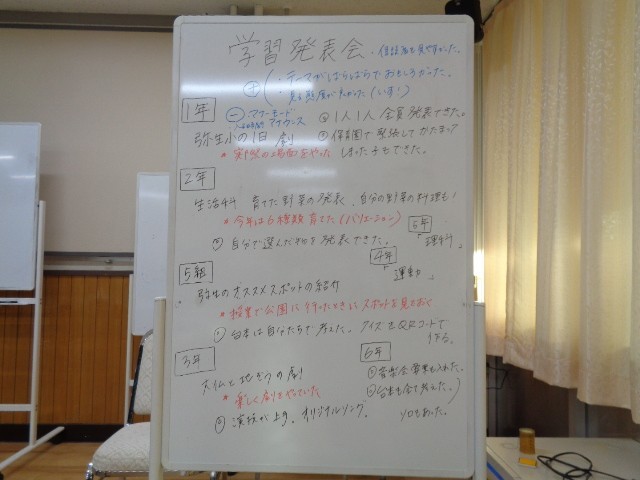 学習発表会
・テーマがばらばらでおもしろかった。
・見る態度が良かった(いす)
1年
⊖ マナーモード
アナウンス
弥生小の1日 劇
*実際の場面をやった
1人1人 全員発表できた。
保育園で緊張して
しまった子もできた。
2年
生活科 育てた野菜の発表、自分の野菜の料理も!
*今年は6種類育てた(バリエーション)
自分で選んだ物を発表できた。
5年
「理科」
4年
「運動」
5組
弥生のオススメスポットの紹介
*授業で公園に行ったときにスポットを見ておく
台本は自分たちで考えた。クイズもQRコードで
作る。
3年
大仏と地ぞうの劇
*楽しく劇をやっていた
演技が上手。オリジナルソング。
6年
音楽会 営業も入れた。
台本も全て考えた。
ソロもあった。